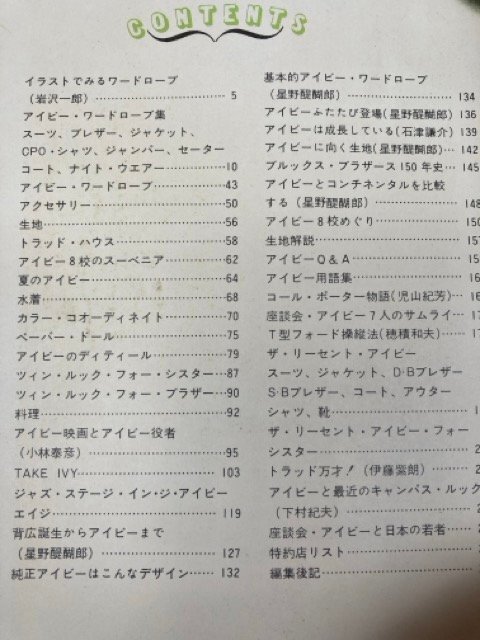 CONTENTS
イラストでみるワードローブ
(岩沢一郎)………5
アイビー・ワードローブ集
スーツ、ブレザー、ジャケット、
CPO・シャツ、ジャンパー、セーター
コート、ナイト・ウエアー………10
アイビー・ワードローブ………43
アクセサリー………50
生地………56
トラッド・ハウス………58
アイビー8校のスーベニア………62
夏のアイビー………64
水着………68
カラー・コオーディネイト………70
ペーパー・ドール………75
アイビーのディティール………79
ツィン・ルック・フォー・シスター…87
ツィン・ルック・フォー・ブラザー…90
料理………92
アイビー映画とアイビー役者
(小林泰彦)………95
TAKE IVY………103
ジャズ・ステージ・イン・ジ・アイビー
エイジ………119
背広誕生からアイビーまで
(星野醍醐郎)………127
純正アイビーはこんなデザイン……132
基本的アイビー・ワードローブ
(星野醍醐郎)………134
アイビーふたたび登場(星野醍醐郎)136
アイビーは成長している(石津謙介)139
アイビーに向く生地(星野醍醐郎)…142
ブルックス・ブラザース150年史…145
アイビーとコンチネンタルを比較
する(星野醍醐郎)………148
アイビー8校めぐり………150
生地解説………15
アイビーQ&A………15
アイビー用語集………16
コール・ポーター物語(児山紀芳)…16
座談会・アイビー7人のサムライ…17
T型フォード操縦法(穂積和夫)…17
ザ・リーセント・アイビー
スーツ、ジャケット、D・Bブレザー
S・Bブレザー、コート、アウター
シャツ、靴………1
ザ・リーセント・アイビー・フォー
シスター………2
トラッド万才!(伊藤紫朗)………2
アイビーと最近のキャンパス・ルック
(下村紀夫)………2
座談会・アイビーと日本の若者…2
特約店リスト………2
編集後記………